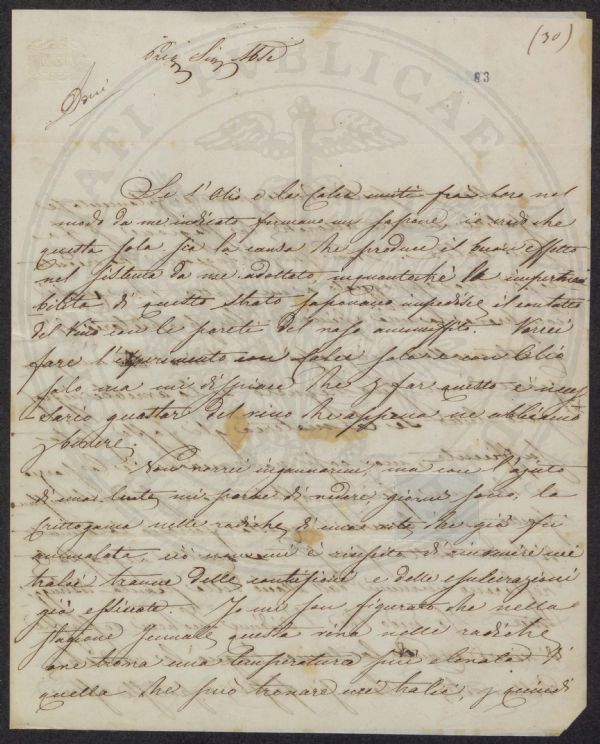 (30)
83
Preg Sig Abe
Se l'Olio e la Calce uniti fra loro nel
modo da me indicato formano un sapone, io credo che
questa sola sia la causa che produce il buon effetto
nel sistema da me adottato inquantoché la impermea
bilità di questo strato saponaceo impedisce il contatto
del Vino con le pareti del vaso ammuffito. Vorrei
fare l'esperimento con Calce sola e con Olio
solo, ma mi dispiace che p far questo è neces
sario guastar del vino che appena ne abbiamo
p bere.
Non vorrei ingannarmi, ma con l'ajuto
di una lente mi parve di vedere, giorni sono, la
Crittogama nelle radiche di una vite che già fu
ammalata, ciò non mi è riuscito di rinvenire nei
tralci tranne delle contusioni e delle esulcerazioni
già essiccate. Io mi son figurato che nella
stagione jemale questa rena nelle radiche
ove trova una temperatura più elevata di
quella che può trovare nei tralci, p quindi